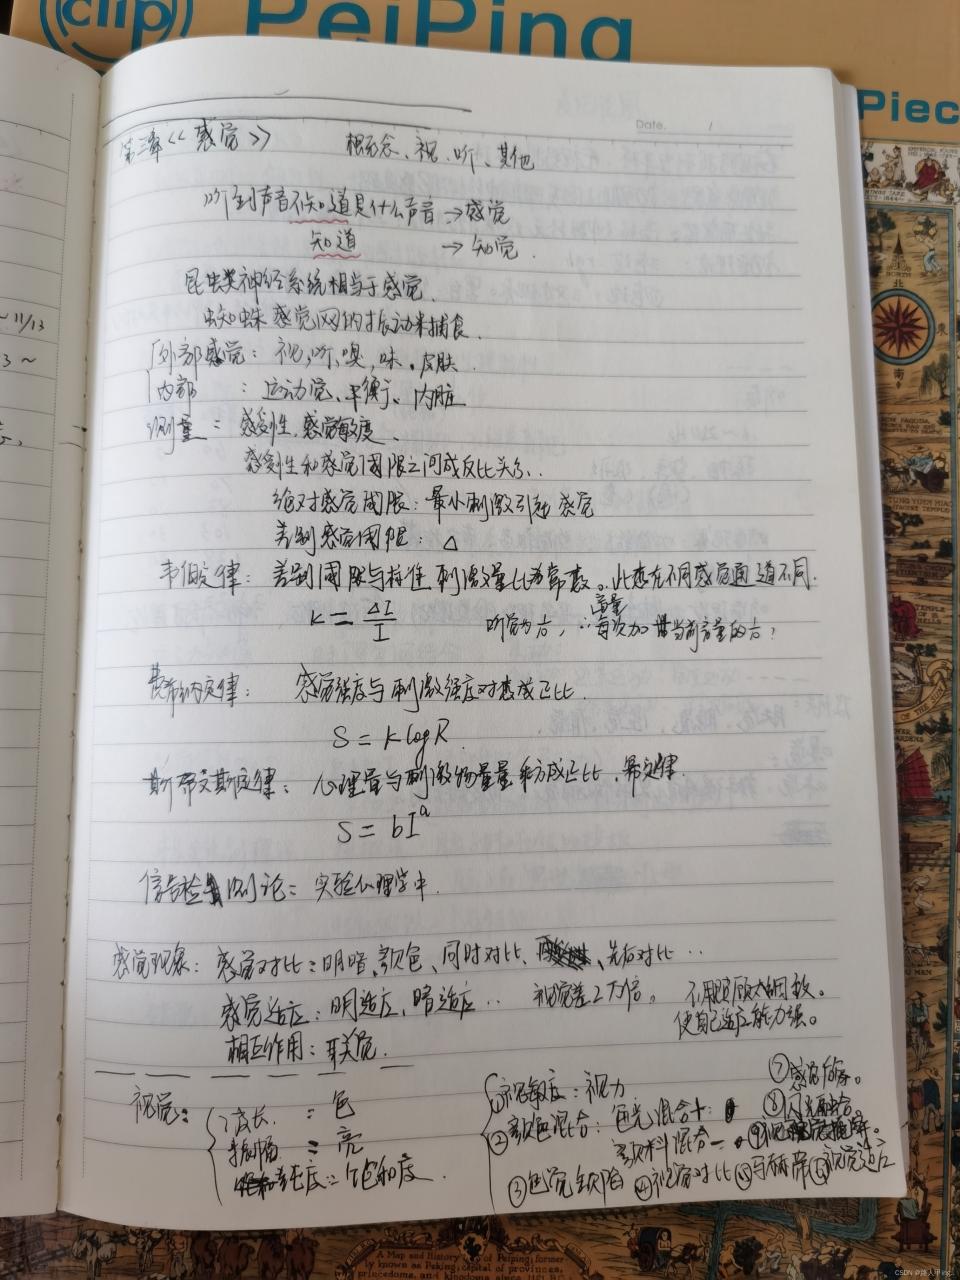 clip PeiPing
Piec
Date. /
第三章《感觉》 概念、视、听、其他
听到声音不知道是什么声音→感觉
知道 →知觉.
昆虫类神经系统相当于感觉.
蜘蛛感觉网的振动来捕食.
外部感觉:视,听,嗅,味.皮肤.
内部 :运动觉、平衡、内脏
测量:感受性,感觉敏度.
感受性和感觉阈限之间成反比关系..
绝对感觉阈限:最小刺激引起感觉
差别感觉阈限: △
韦伯定律:差别阈限与标准刺激量比为常数。此在不同感觉通道不同.
K = ΔI/I
音量
听觉为 ,∴每次加 当前音量的
费希纳定律: 感觉强度与刺激强度对数成正比.
S = K log R.
斯蒂文斯定律:心理量与刺激物量量乘方成正比.幂定律.
S = bIᵃ
信号检测论:实验心理学中.
感觉现象:感觉对比:明暗、颜色、同时对比、先后对比…
感觉适应:明适应,暗适应.. 视觉差20万倍。 不用照顾大的因数。
使自己适应能力强。
相互作用:联觉.
视觉:
波长 :色
振幅 :亮
纯度:饱和度.
①视敏度:视力
②颜色混合:色光混合+
颜料混合-
③色觉缺陷 ④视觉对比 ⑤马赫带 ⑥视觉适应
⑦感觉后像。
⑧闪光融合
⑨视觉掩蔽。
北
東
南
A Map and History of Peiping; formerly known as Peking; capital of provinces, princedoms, and kingdoms since 1121
CSDN @路人甲ing..
~11/13
3~